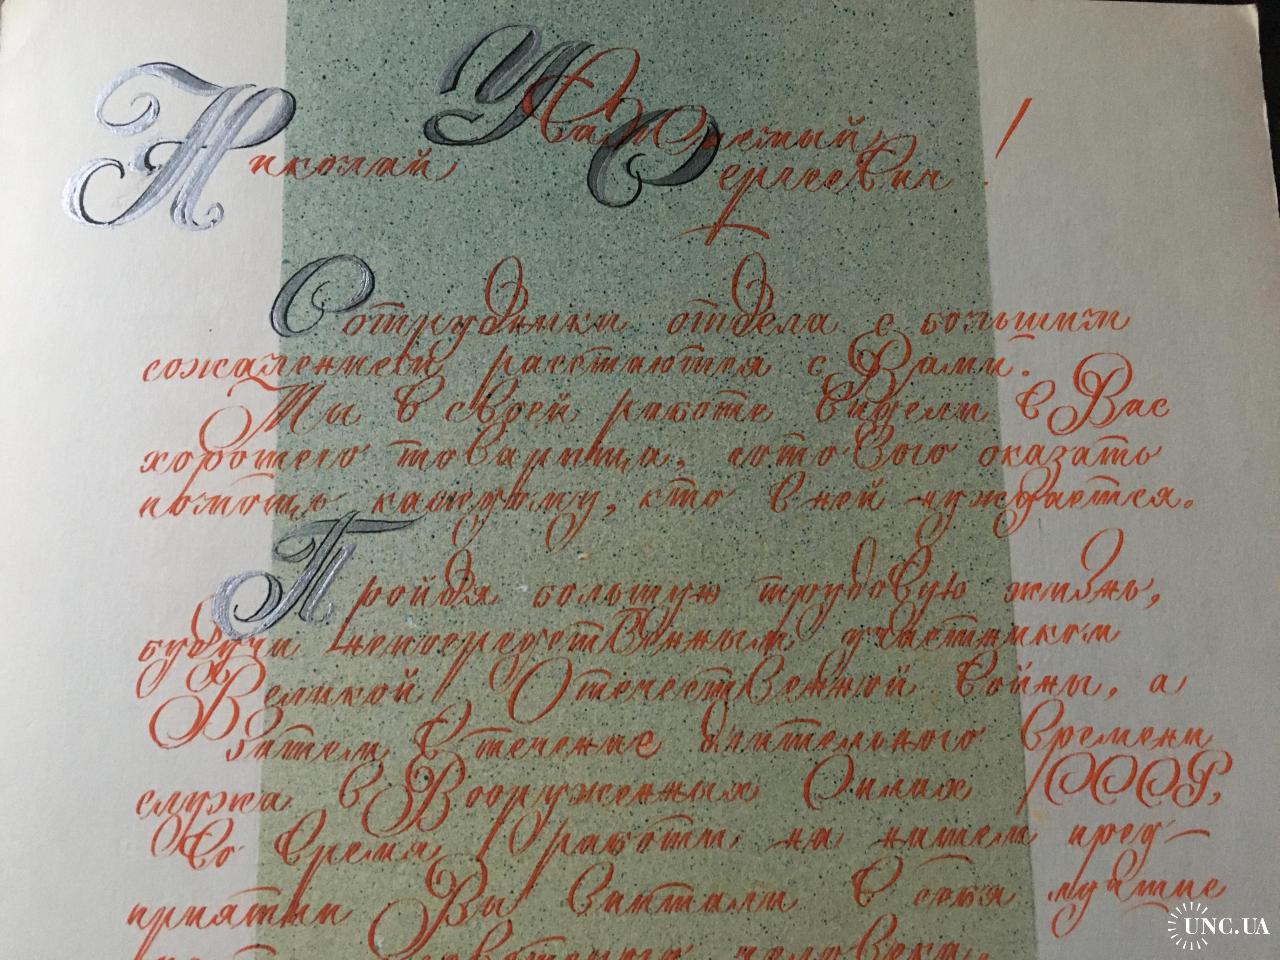 Уважаемый
Николай Сергеевич!
Сотрудники отдела с большим
сожалением расстаются с Вами.
Мы в своей работе видели в Вас
хорошего товарища, готового оказать
помощь каждому, кто в ней нуждается.
Пройдя большую трудовую жизнь,
будучи непосредственным участником
Великой Отечественной войны, а
затем в течение длительного времени
служа в Вооруженных Силах СССР,
Во время работы на нашем пред-
приятии Вы впитали в себя лучшие
советского человека.
UNC.UA